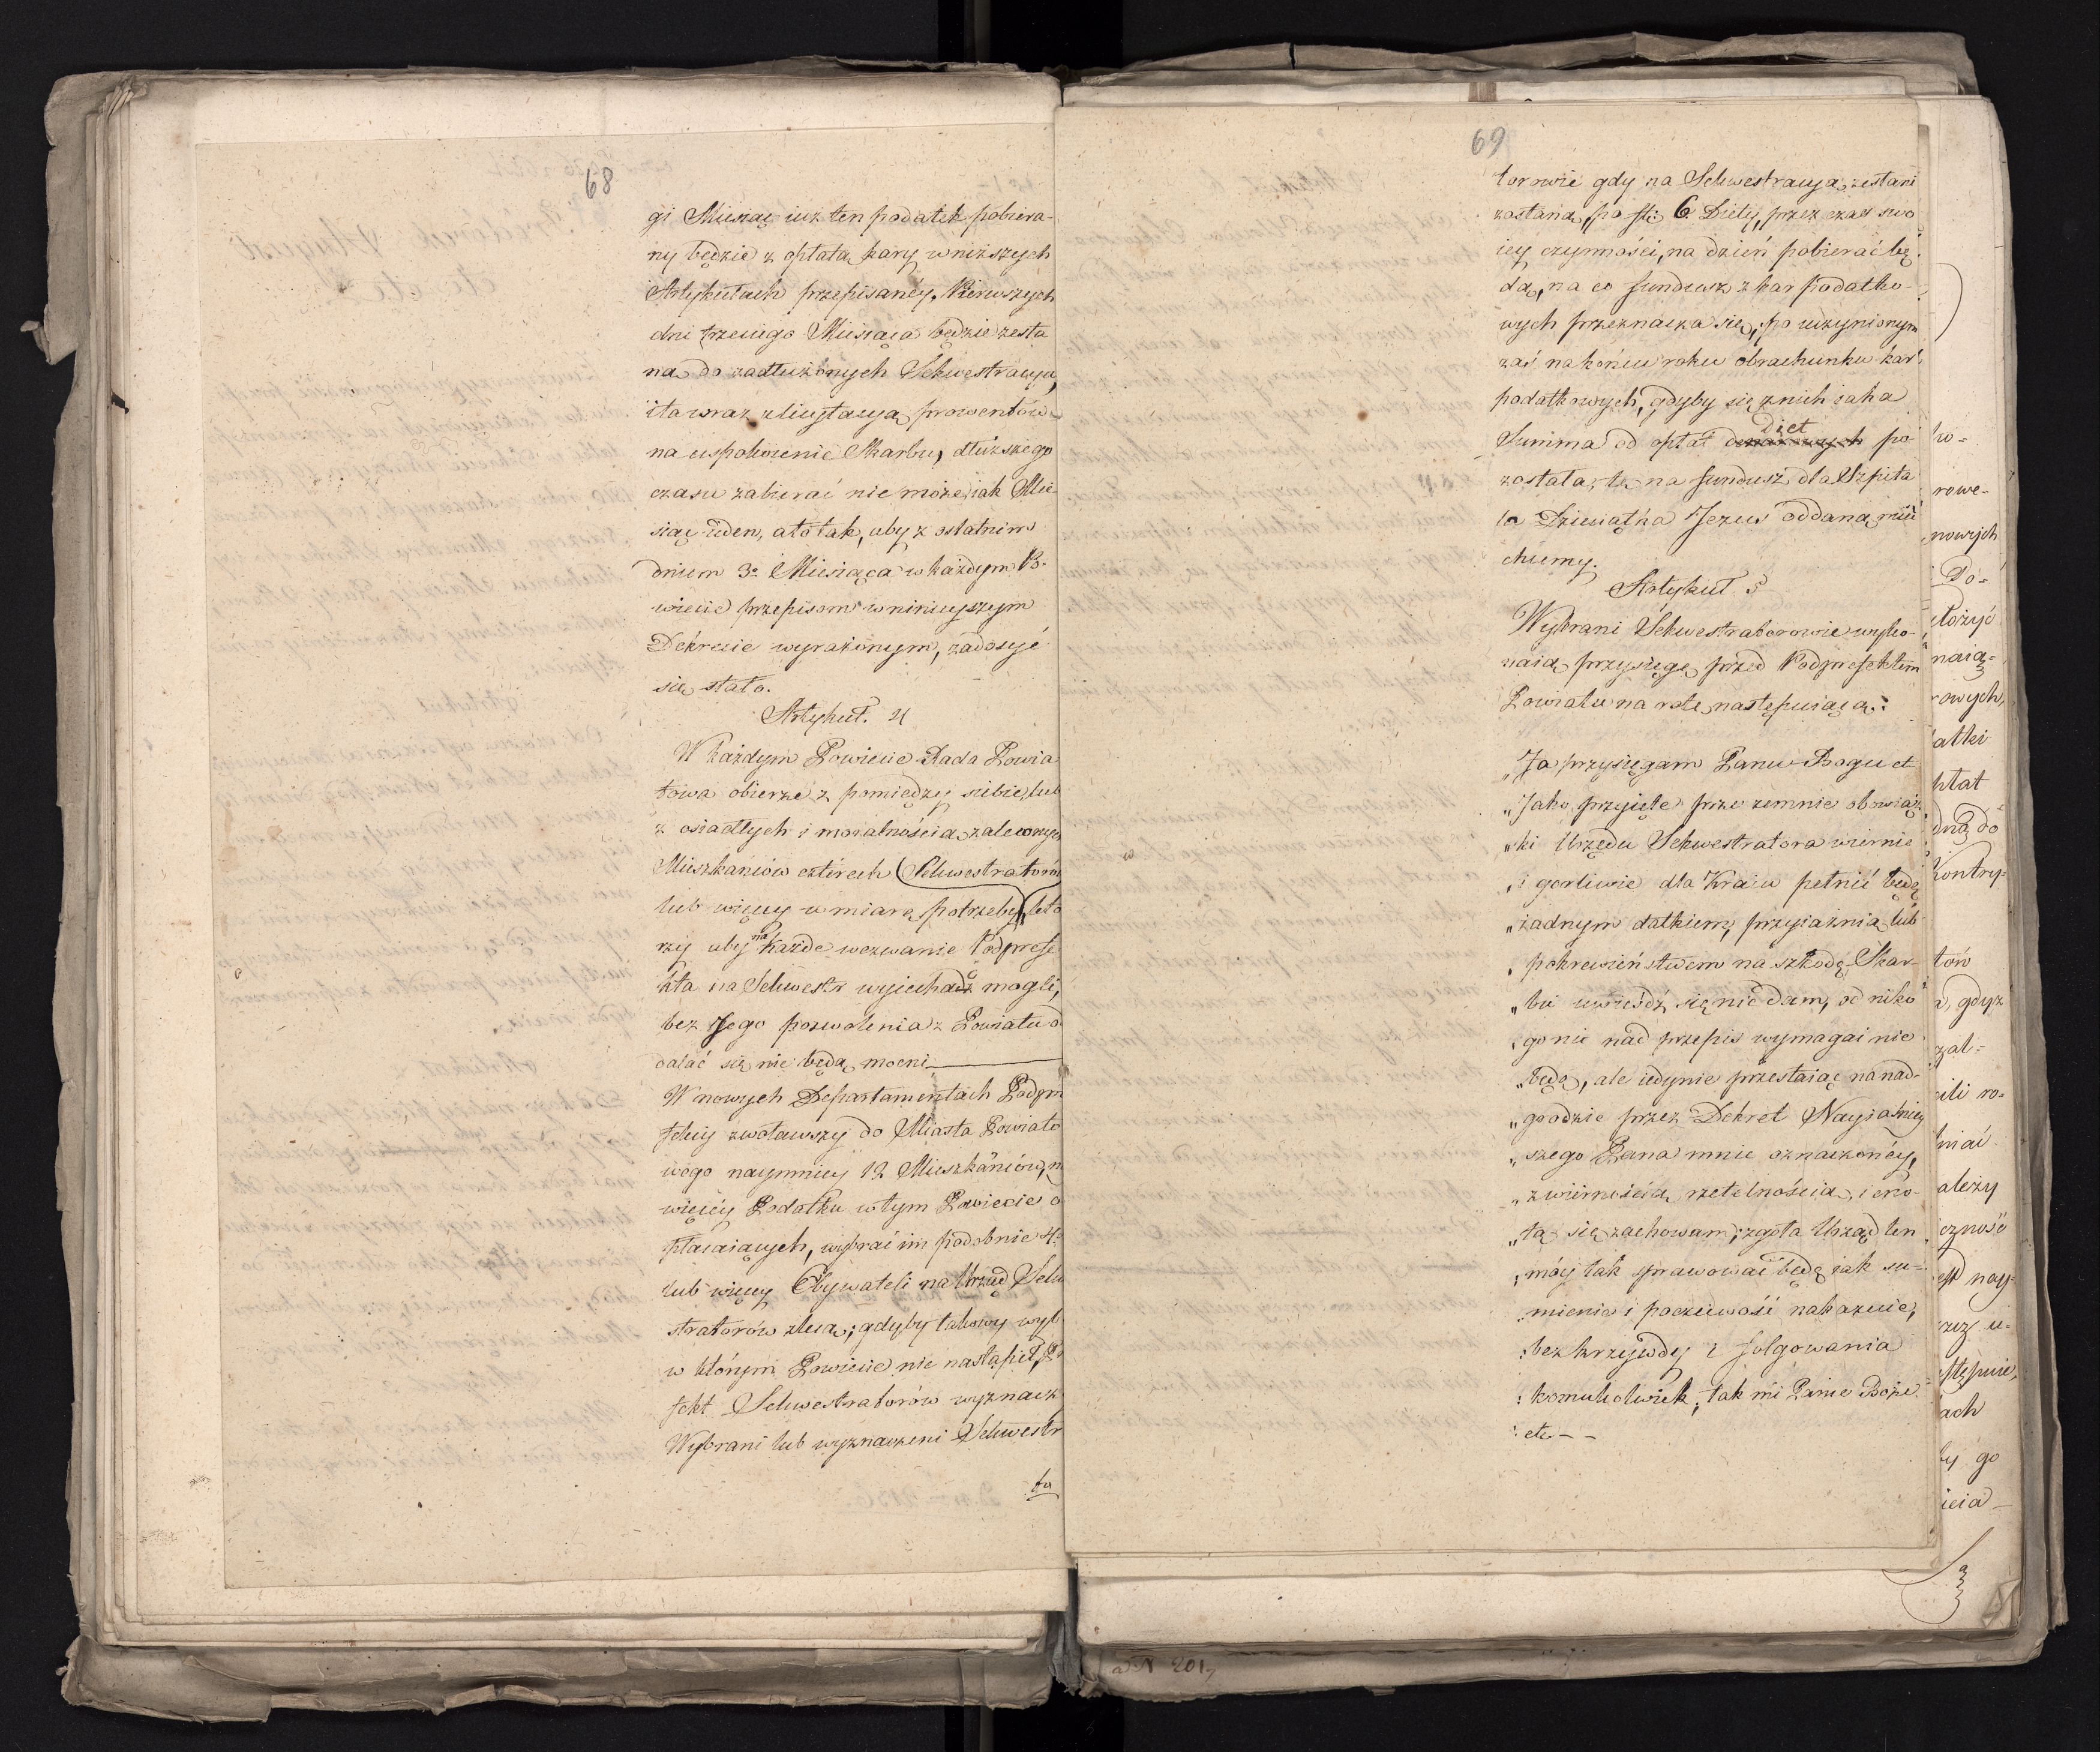 68
gi Miesiąc iuż ten podatek pobiera-
ny będzie z opłatą kary w niższych
Artykułach przepisanéy. Pierwszych
dni trzeciego Miesiąca będzie zesła
na do zadłużonych Sekwestracya,
i ta wraz z licytacyą prowentów
na uspokoienie Skarbu, dłuższego
czasu zabierać nie może iak Mie-
siąc ieden, a to tak, aby z ostatnim
dniem 3º Miesiąca w każdym Po-
wiecie przepisom w ninieyszym
Dekrecie wyrażonym, zadosyć
się stało.
Artykuł. 4
W każdym Powiecie Rada Powia
towa obierze z pomiędzy siebie, lub
z osiadłych i moralnością zaleconych
Mieszkańców czterech (Sekwestratorów
lub więcey w miarę potrzeby) któ
rzy aby na każde wezwanie Podprefe
kta na Sekwestr wyjechać mogli,
bez Jego pozwolenia z Powiatu o
dalać się nie będą mocni
W nowych Departamentach Podpre
fekcij zwoławszy do Miasta Powiato
wego naymniey 12 Mieszkańców, n
więcéy Podatku w tym Powiecie o
płacaiących, wybrać im podobnie 4º
lub więcey Obywateli na Urząd Sekw
stratorów zleca; gdyby takowy wyb
w którym Powiecie nie nastąpił, P
fekt Sekwestratorów wyznacz
Wybrani lub wyznaczeni Sekwestr
to
69
torowie gdy na Sekwestracyą zesłani
zostaną, po fl: 6 Diety, przez czas swo
iey czynności, na dzień pobierać bę
dą, na co fundusz z kar podatko-
wych przeznacza się, po uczynionym
zaś na końcu roku obrachunku kar
podatkowych, gdyby się z nich iaka
Summa od opłat diet po-
została, tę na fundusz dla Szpita
la Dzieciątka Jezus oddaną mieć
chcemy.
Artykuł 5
Wybrani Sekwestratorowie wyko-
naią przysięgę przed Podprefektem
Powiatu na rotę następuiącą:
„Ja przysięgam Panu Bogu et
„Jako przyięte prze zemnie obowiąz
„ki Urzędu Sekwestratora wiernie
„i gorliwie dla Kraiu pełnić będę
„żadnym datkiem, przyiaźnią lub
„pokrewieństwem na szkodę Skar-
„bu uwieśdź się nie dam, od niko
„go nic nad przepis wymagai nie
„będę, ale iedynie przestaiąc na nad-
„grodzie przez Dekret Nayiaśniey
„szego Pana mnie oznaczonéy,
„z wiernością, rzetelnością, i cno-
„tą się zachowam, zgoła Urząd ten
„móy tak sprawować będę iak su-
„mienie i poczciwość nakazuie,
„bez krzywdy i folgowania
„komukolwiek, tak mi Panie Boże
„etc – –
ko-
rowe-
nowych
Do-
łożyć
naią-
owych,
atki
płat
dną do
Kontry-
tów
, gdyż
zal-
ili ro-
niać
ależy
czność
est nay-
rzez u-
stępuie,
ach
by go
icia –